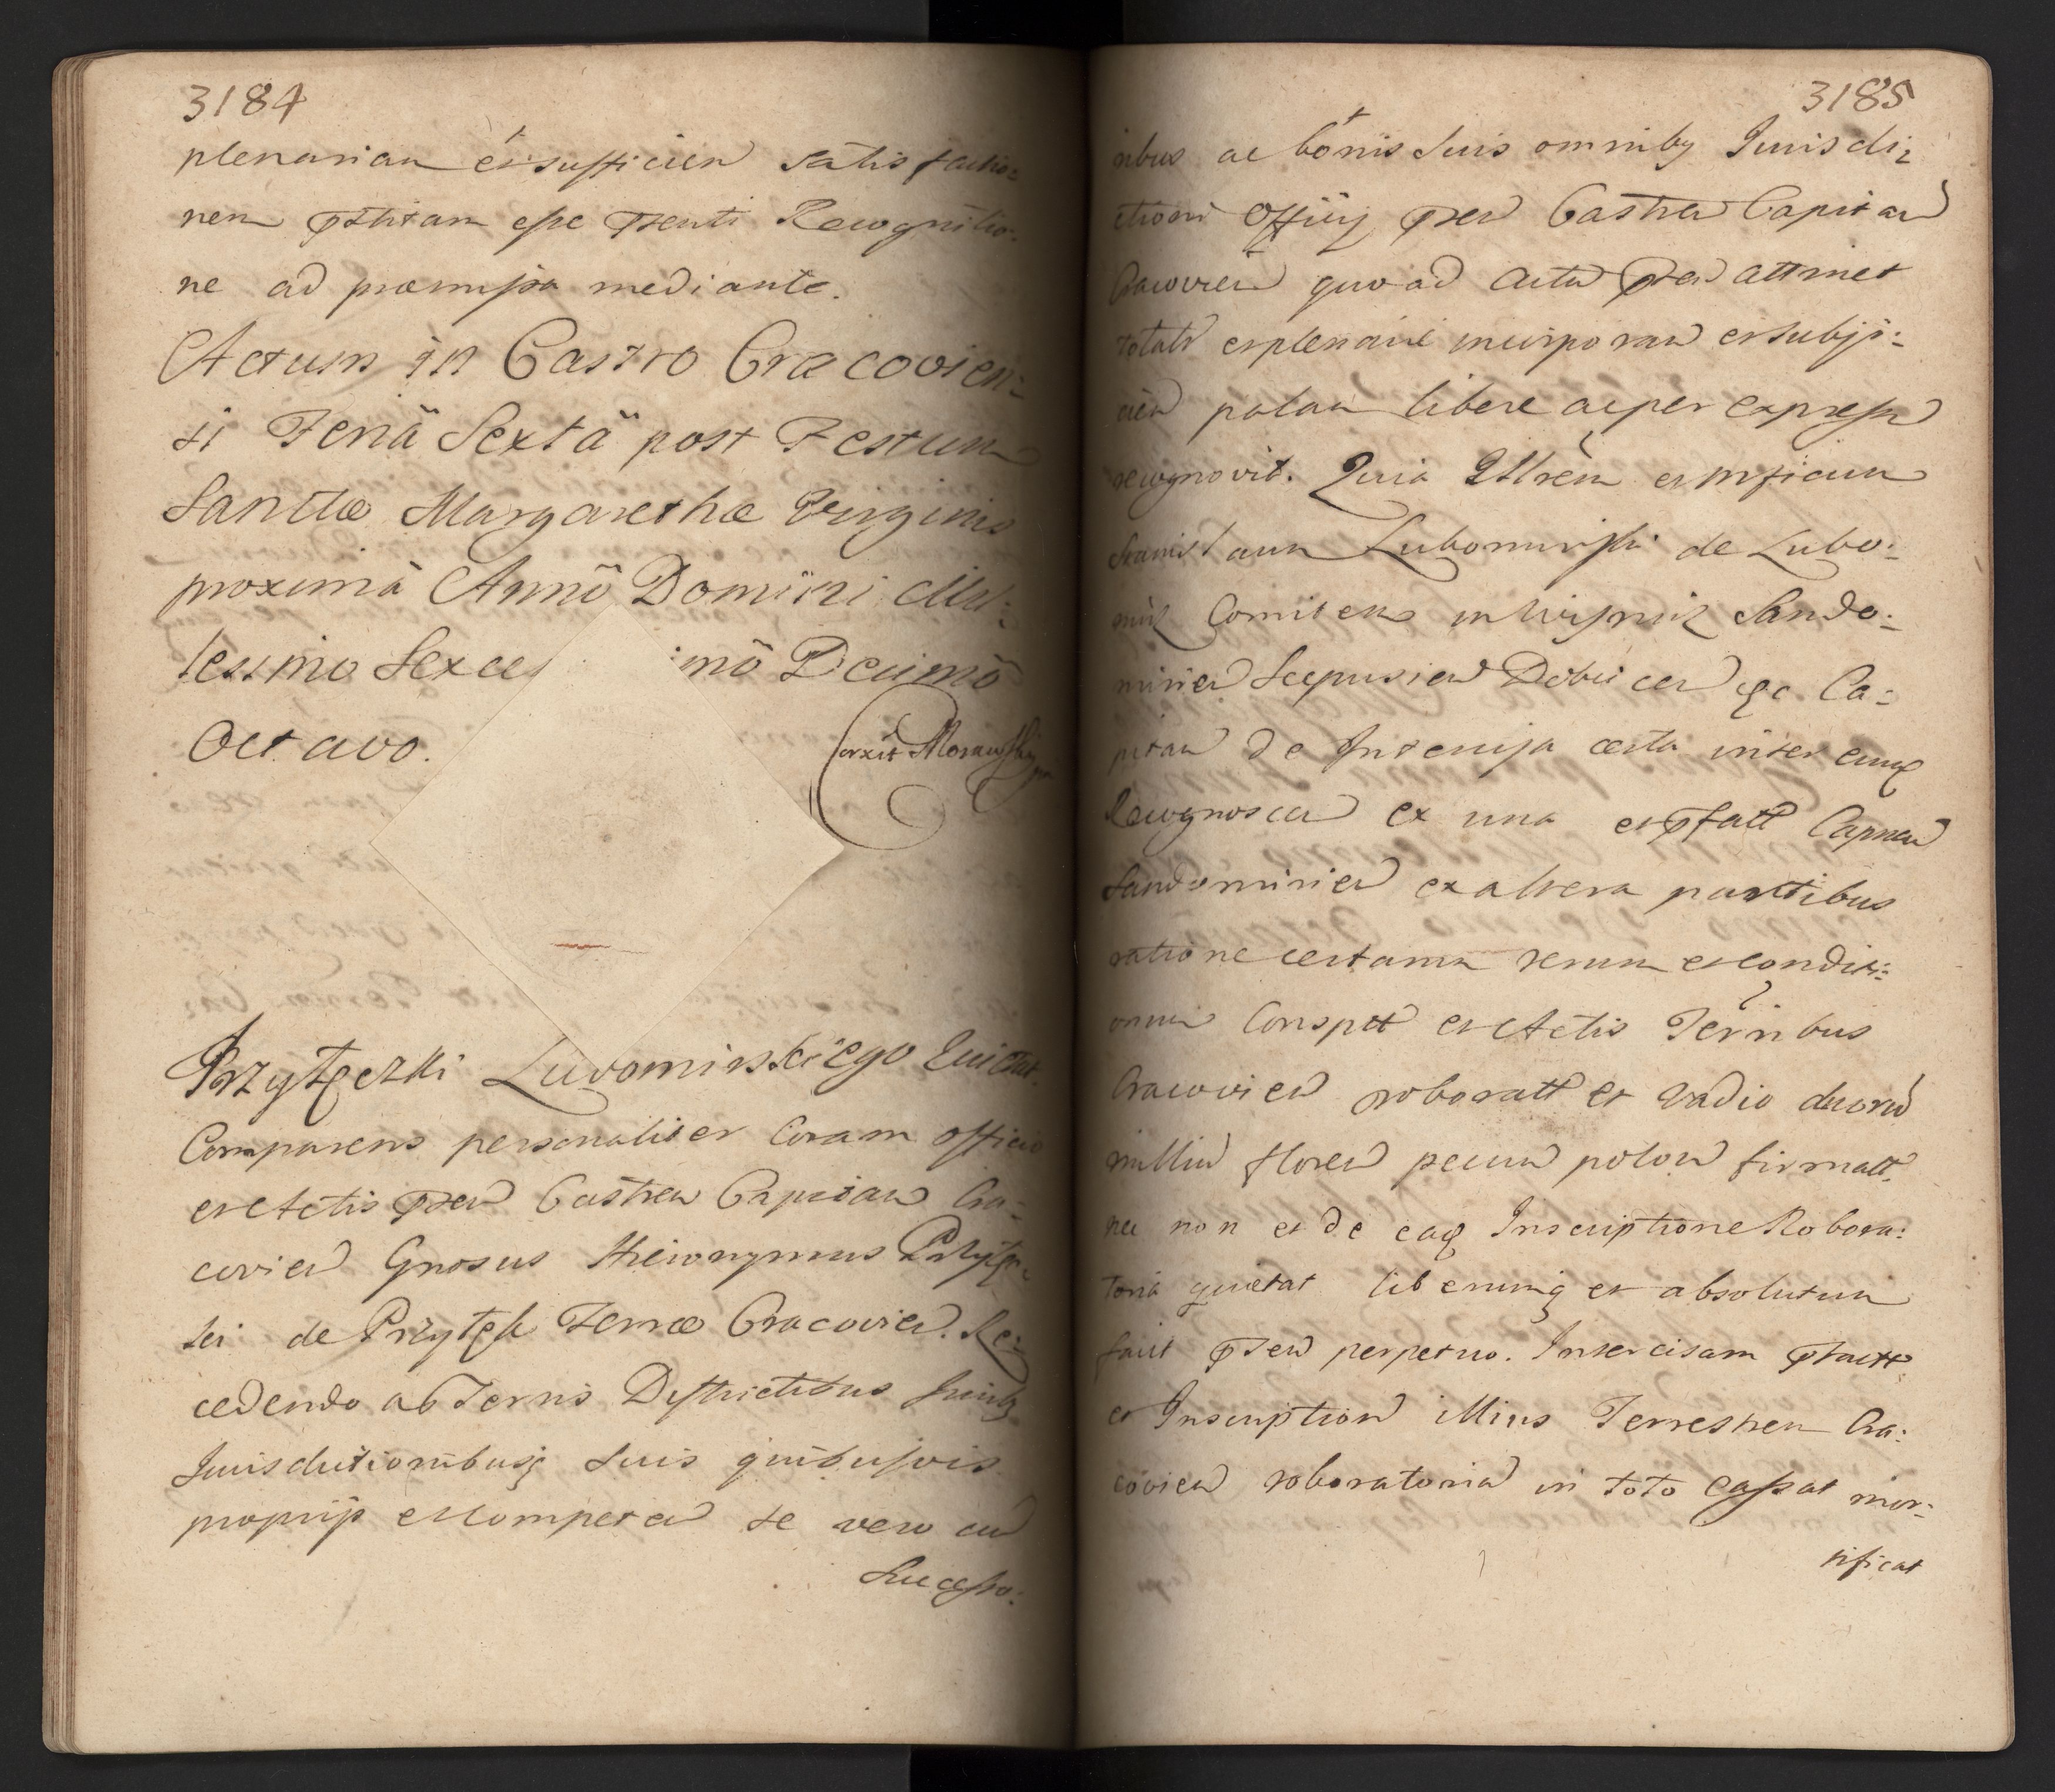 3184
plenariam et sufficien satisfactio:
nem pstitam esse psenti Recognitio:
ne ad præmissa mediante.
Actum in Castro Cracovien:
si Feriâ Sextâ post Festum
Sanctæ Margarethæ Virginis
proximâ Annô Domini Mil:
lesimo Sexce imô Decimô
Octavo.
Corxit Morawsky
Przyłęczki Lubomirskiego Quietat.
Comparens personaliter Coram officio
et Actis psen Castren Capitan Cra:
covien Gnosus Hieronymus Przyłę:
cki de Przyłęk Terræ Cracovien. Re:
cedendo a Terris Districtibus Juribq
Jurisdictionibusq suis quibusvis
proprijs et competen se vero cum
Successo:
3185
ribus ac bonis suis omnibq Jurisdi:
ctioni Officij psen Castren Capitan
Cracovien quoad Actum psen attinet
totalr et plenarie incorporan et subji:
cien palam libere ac per expressum
recognovit. Quia Illrem et Mficum
Stanislaum Lubomirski de Lubo:
mirz Comitem in Wisnicz Sando:
mirien Scepusien Dobcicen &c Ca:
pitan de Intercisa certa inter eumq
Recognoscen ex una et pfatt Capneum
Sandomirien ex altera partibus
ratione certarum rerum et conditi:
onum Consptt et Actis Terrribus
Cracovien roboratt et vadio duorum
millium floren pecun polon firmatt.
nec non et de eaq Inscriptione Robora:
toria quietat liberumq et absolutum
facit psen perpetuo. Intercisam pfactt
et Inscription illius Terrestrem Cra:
covien roboratoriam in toto cassat mor:
tificat